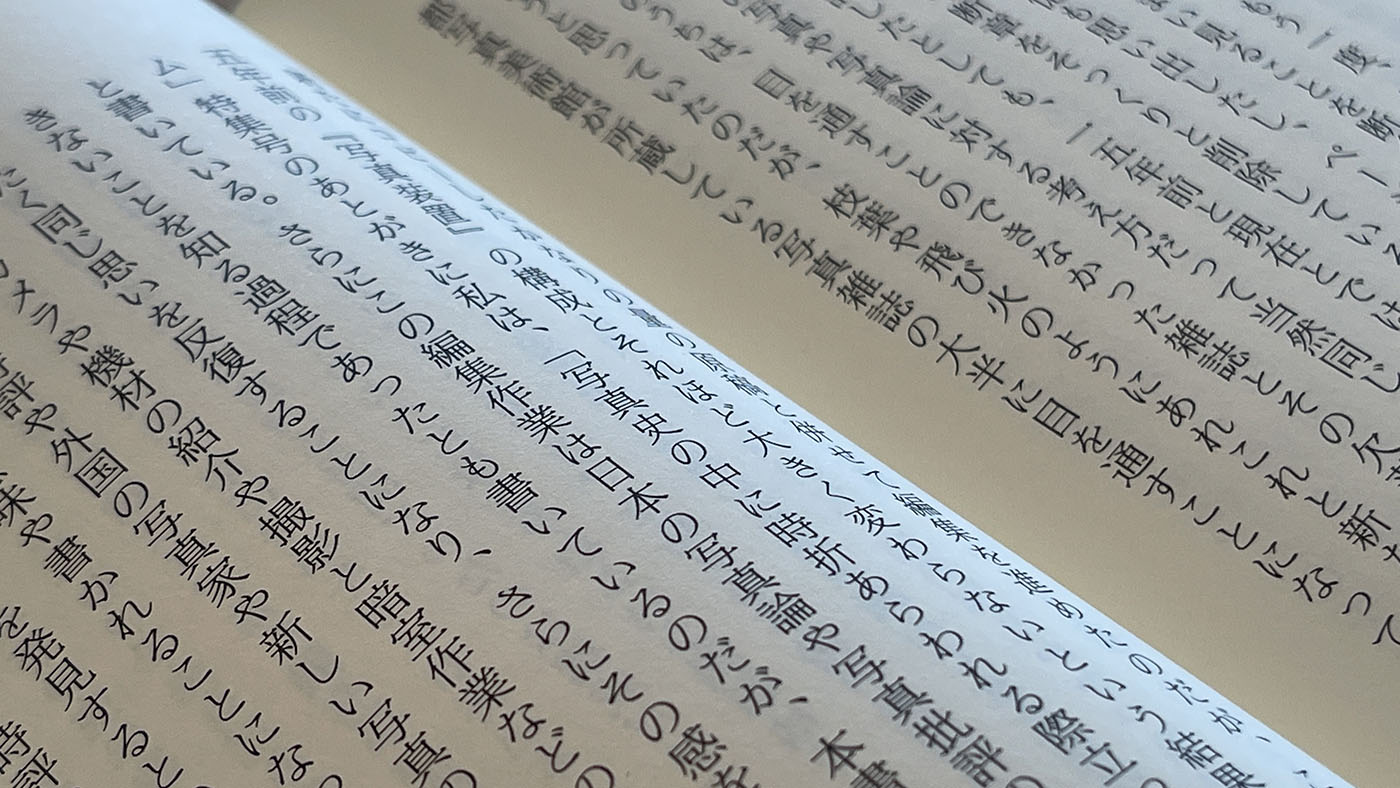 もう一度、
い見ることを断
も思い出したし、ペー
断章をそっくりと削除してい
したとしても、一五年前と現在とでは
写真や写真論に対する考え方だって当然同じ
のうちは、目を通すことのできなかった雑誌とその欠
うと思っていたのだが、枝葉や飛び火のようにあれこれと新
都写真美術館が所蔵している写真雑誌の大半に目を通すことになって
したかなりの量の原稿と併せて編集を進めたのだが、
五年前の『写真装置』の構成とそれほど大きく変わらないという結果
ム」特集号のあとがきに私は、「写真史の中に時折あらわれる際立っ
と書いている。さらにこの編集作業は日本の写真論や写真批評の
きないことを知る過程であったとも書いているのだが、本書
たく同じ思いを反復することになり、さらにその感を
カメラや機材の紹介や撮影と暗室作業などの
評や外国の写真家や新しい写真の
味や書かれることになっ
を発見すると
時評